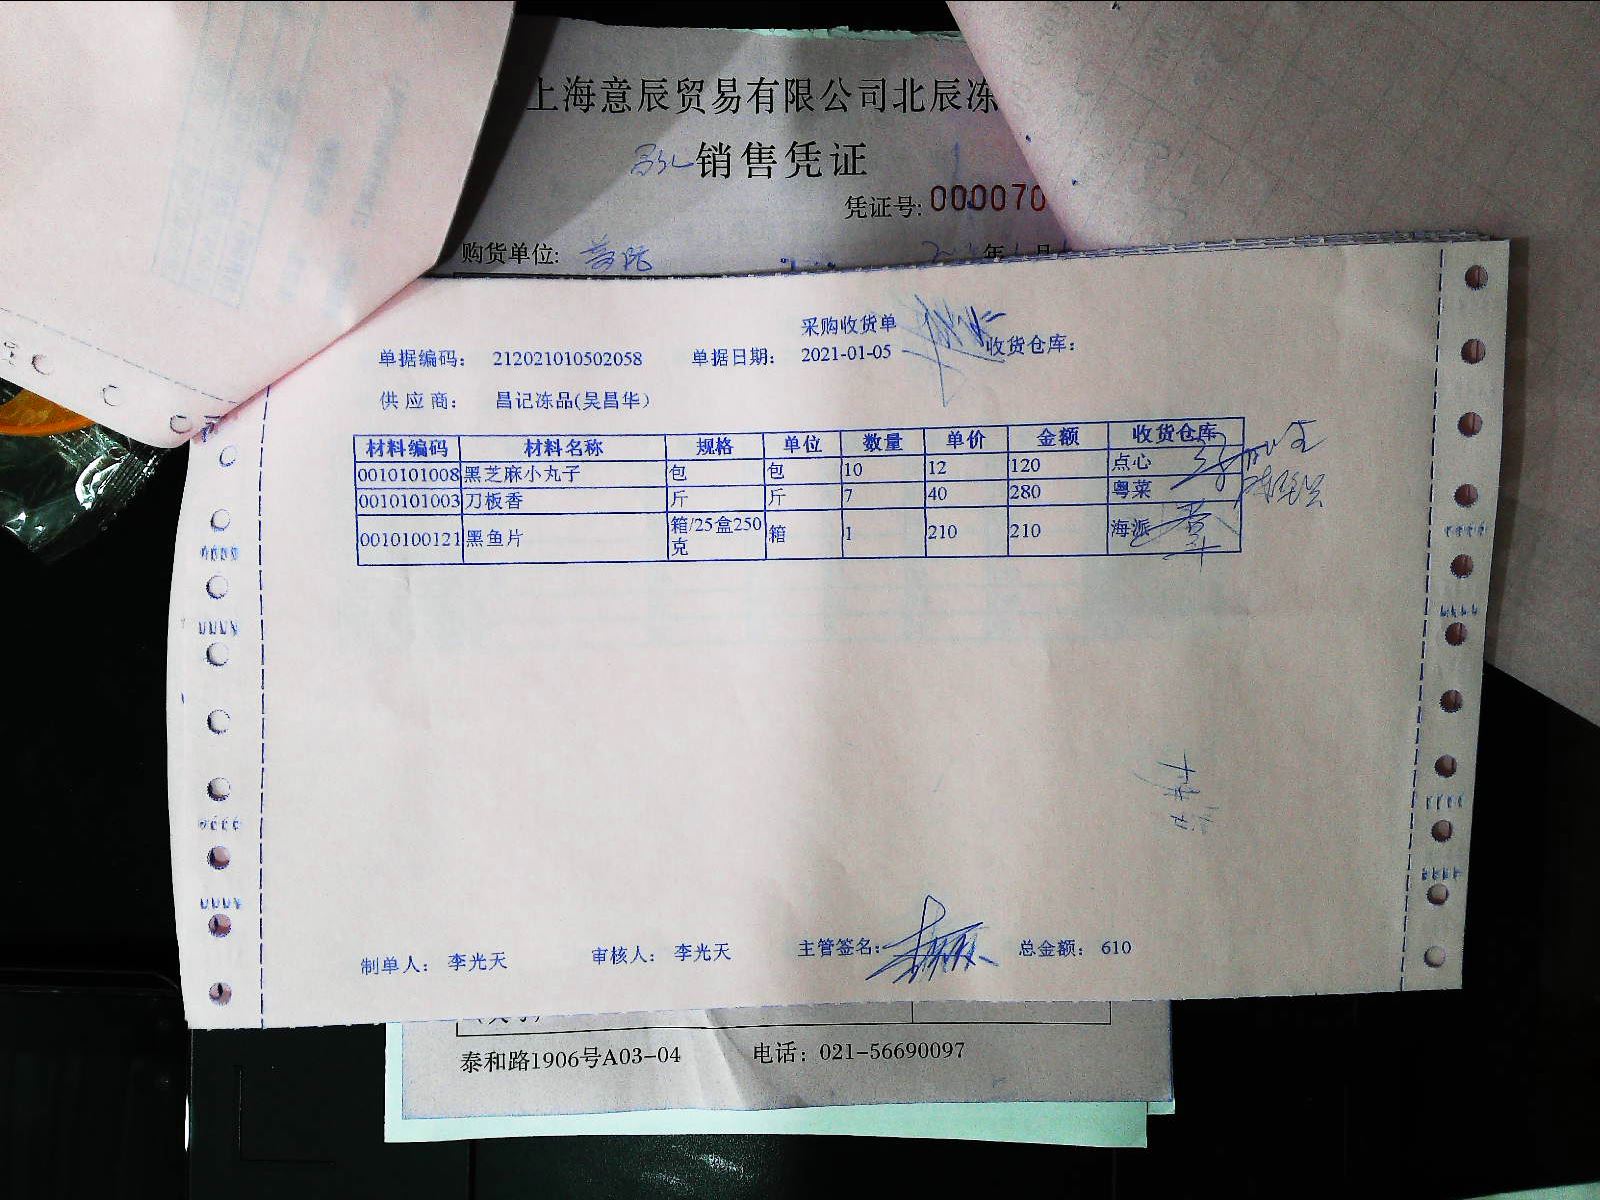 上海意辰贸易有限公司北辰冻
销售凭证
凭证号: 000070
购货单位:
采购收货单
单据编码: 212021010502058 单据日期: 2021-01-05 收货仓库:
供应商: 昌记冻品(吴昌华)
材料编码 材料名称 规格 单位 数量 单价 金额 收货仓库
0010101008 黑芝麻小丸子 包 包 10 12 120 点心
0010101003 刀板香 斤 斤 7 40 280 粤菜
0010100121 黑鱼片 箱/25盒250克 箱 1 210 210 海派
制单人: 李光天 审核人: 李光天 主管签名: 总金额: 610
泰和路1906号A03-04 电话: 021-56690097